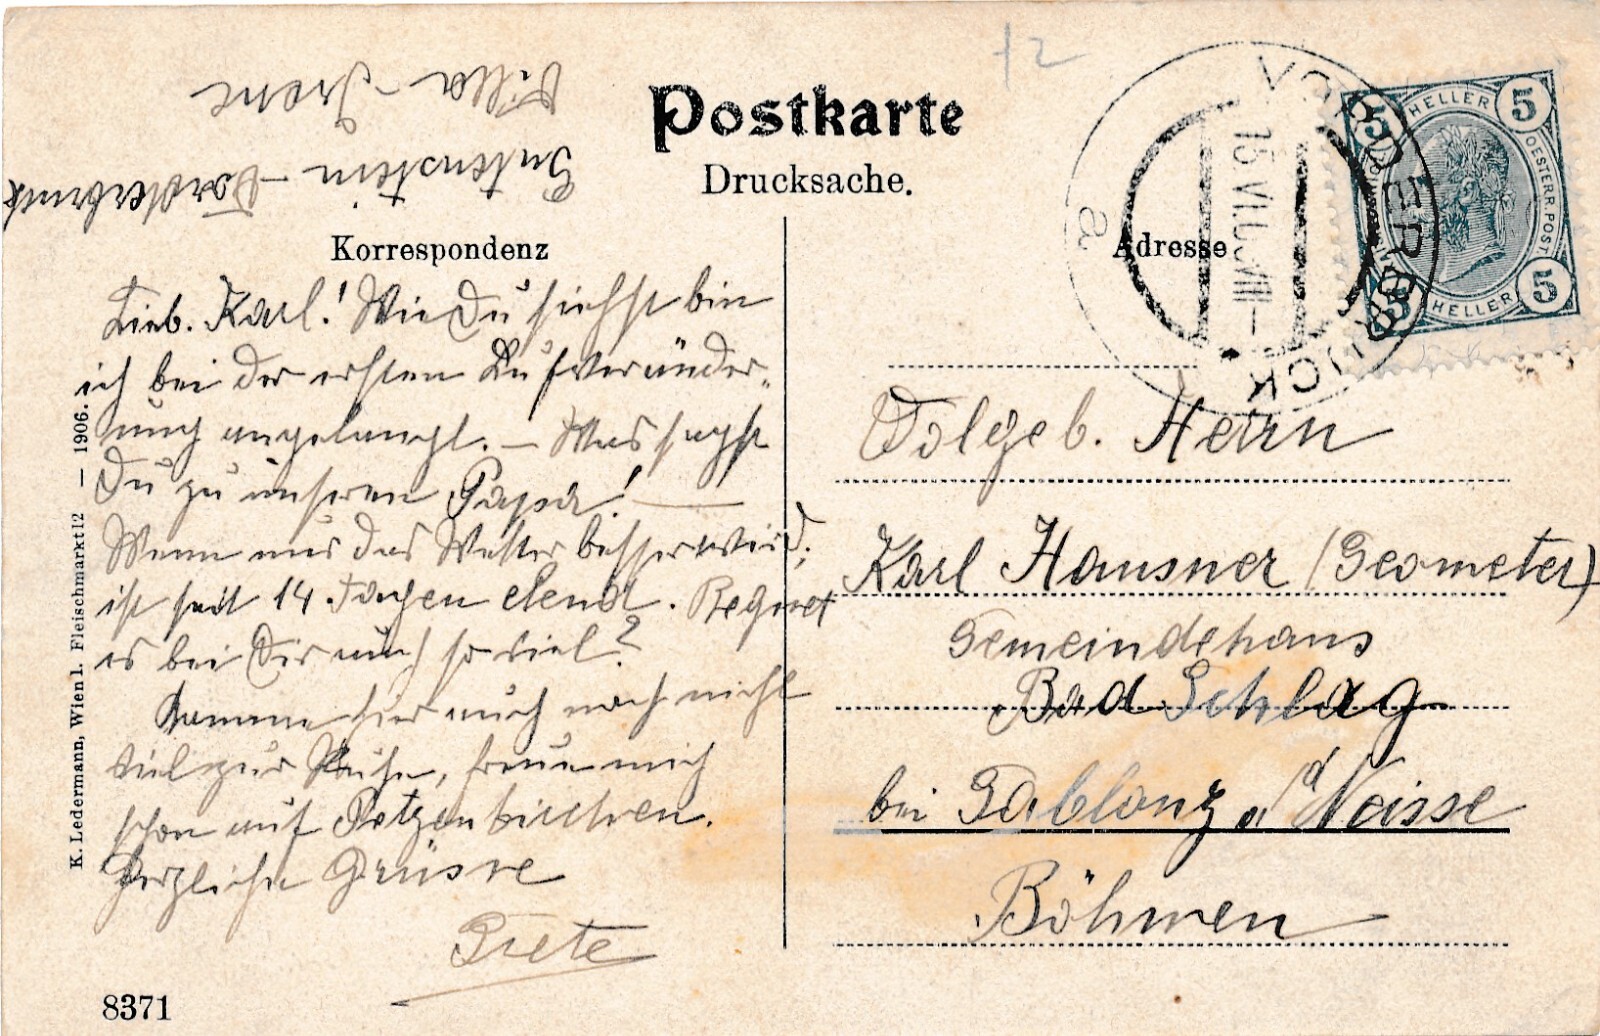 Postkarte
Drucksache.
Villa Irene
Gutenstein - Vorderbruck
Korrespondenz
Adresse
Lieb. Karl! Wie Du siehst bin
ich bei der ersten Luftveränder-
ung angelangt. — Was sagst
Du zu unseren Papa! —
Wenn nur das Wetter besser wird,
ist seit 14 Tagen elend. Regnet
es bei Dir auch so viel?
Komme hier auch noch nicht
viel zur Ruhe, freue mich
schon auf Petzenkirchen.
Herzliche Grüsse
Grete
Wolgeb. Herrn
Karl Hausner (Geometer)
Gemeindehaus
Bad Schlag
bei Gablonz a/d Neisse
Böhmen
VORDERBRUCK
15.VI.08.VIII-
a
5 HELLER 5
OESTERR. POST
5 HELLER 5
12
K. Ledermann, Wien I. Fleischmarkt 12 — 1906.
8371